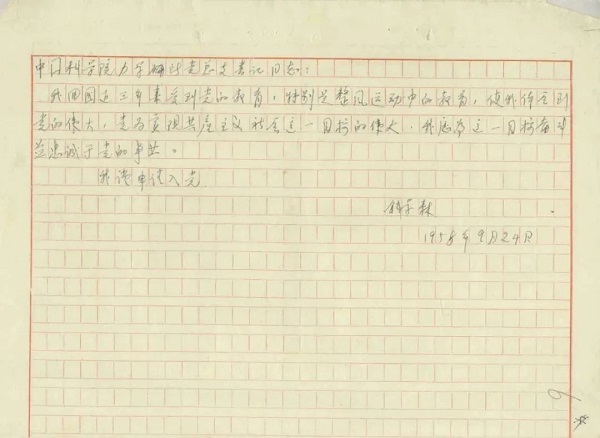 中国科学院力学研究所党总支书记同志：
我回国近三年来受到党的教育，特别是整风运动中的教育，使我体会到
党的伟大，党为实现共产主义社会这一目标的伟大。我愿为这一目标奋斗
并忠诚于党的事业。
我谨申请入党
钱学森
1958年9月24日
6